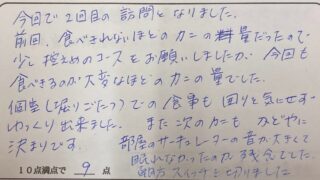 今回で2回目の訪問となりました。
前回、食べきれないほどのカニの量だったので
少し控えめのコースをお願いしましたが、今回も
食べきるのが大変なほどのカニの量でした。
個室(堀りごたつ)での食事も回りを気にせず
ゆっくり出来ました。また次のカニもひさやに
決まりです。部屋のサーキュレーターの音が大きくて
眠れなかったのが残念でした。
10点満点で 9 点 スイッチを切りました